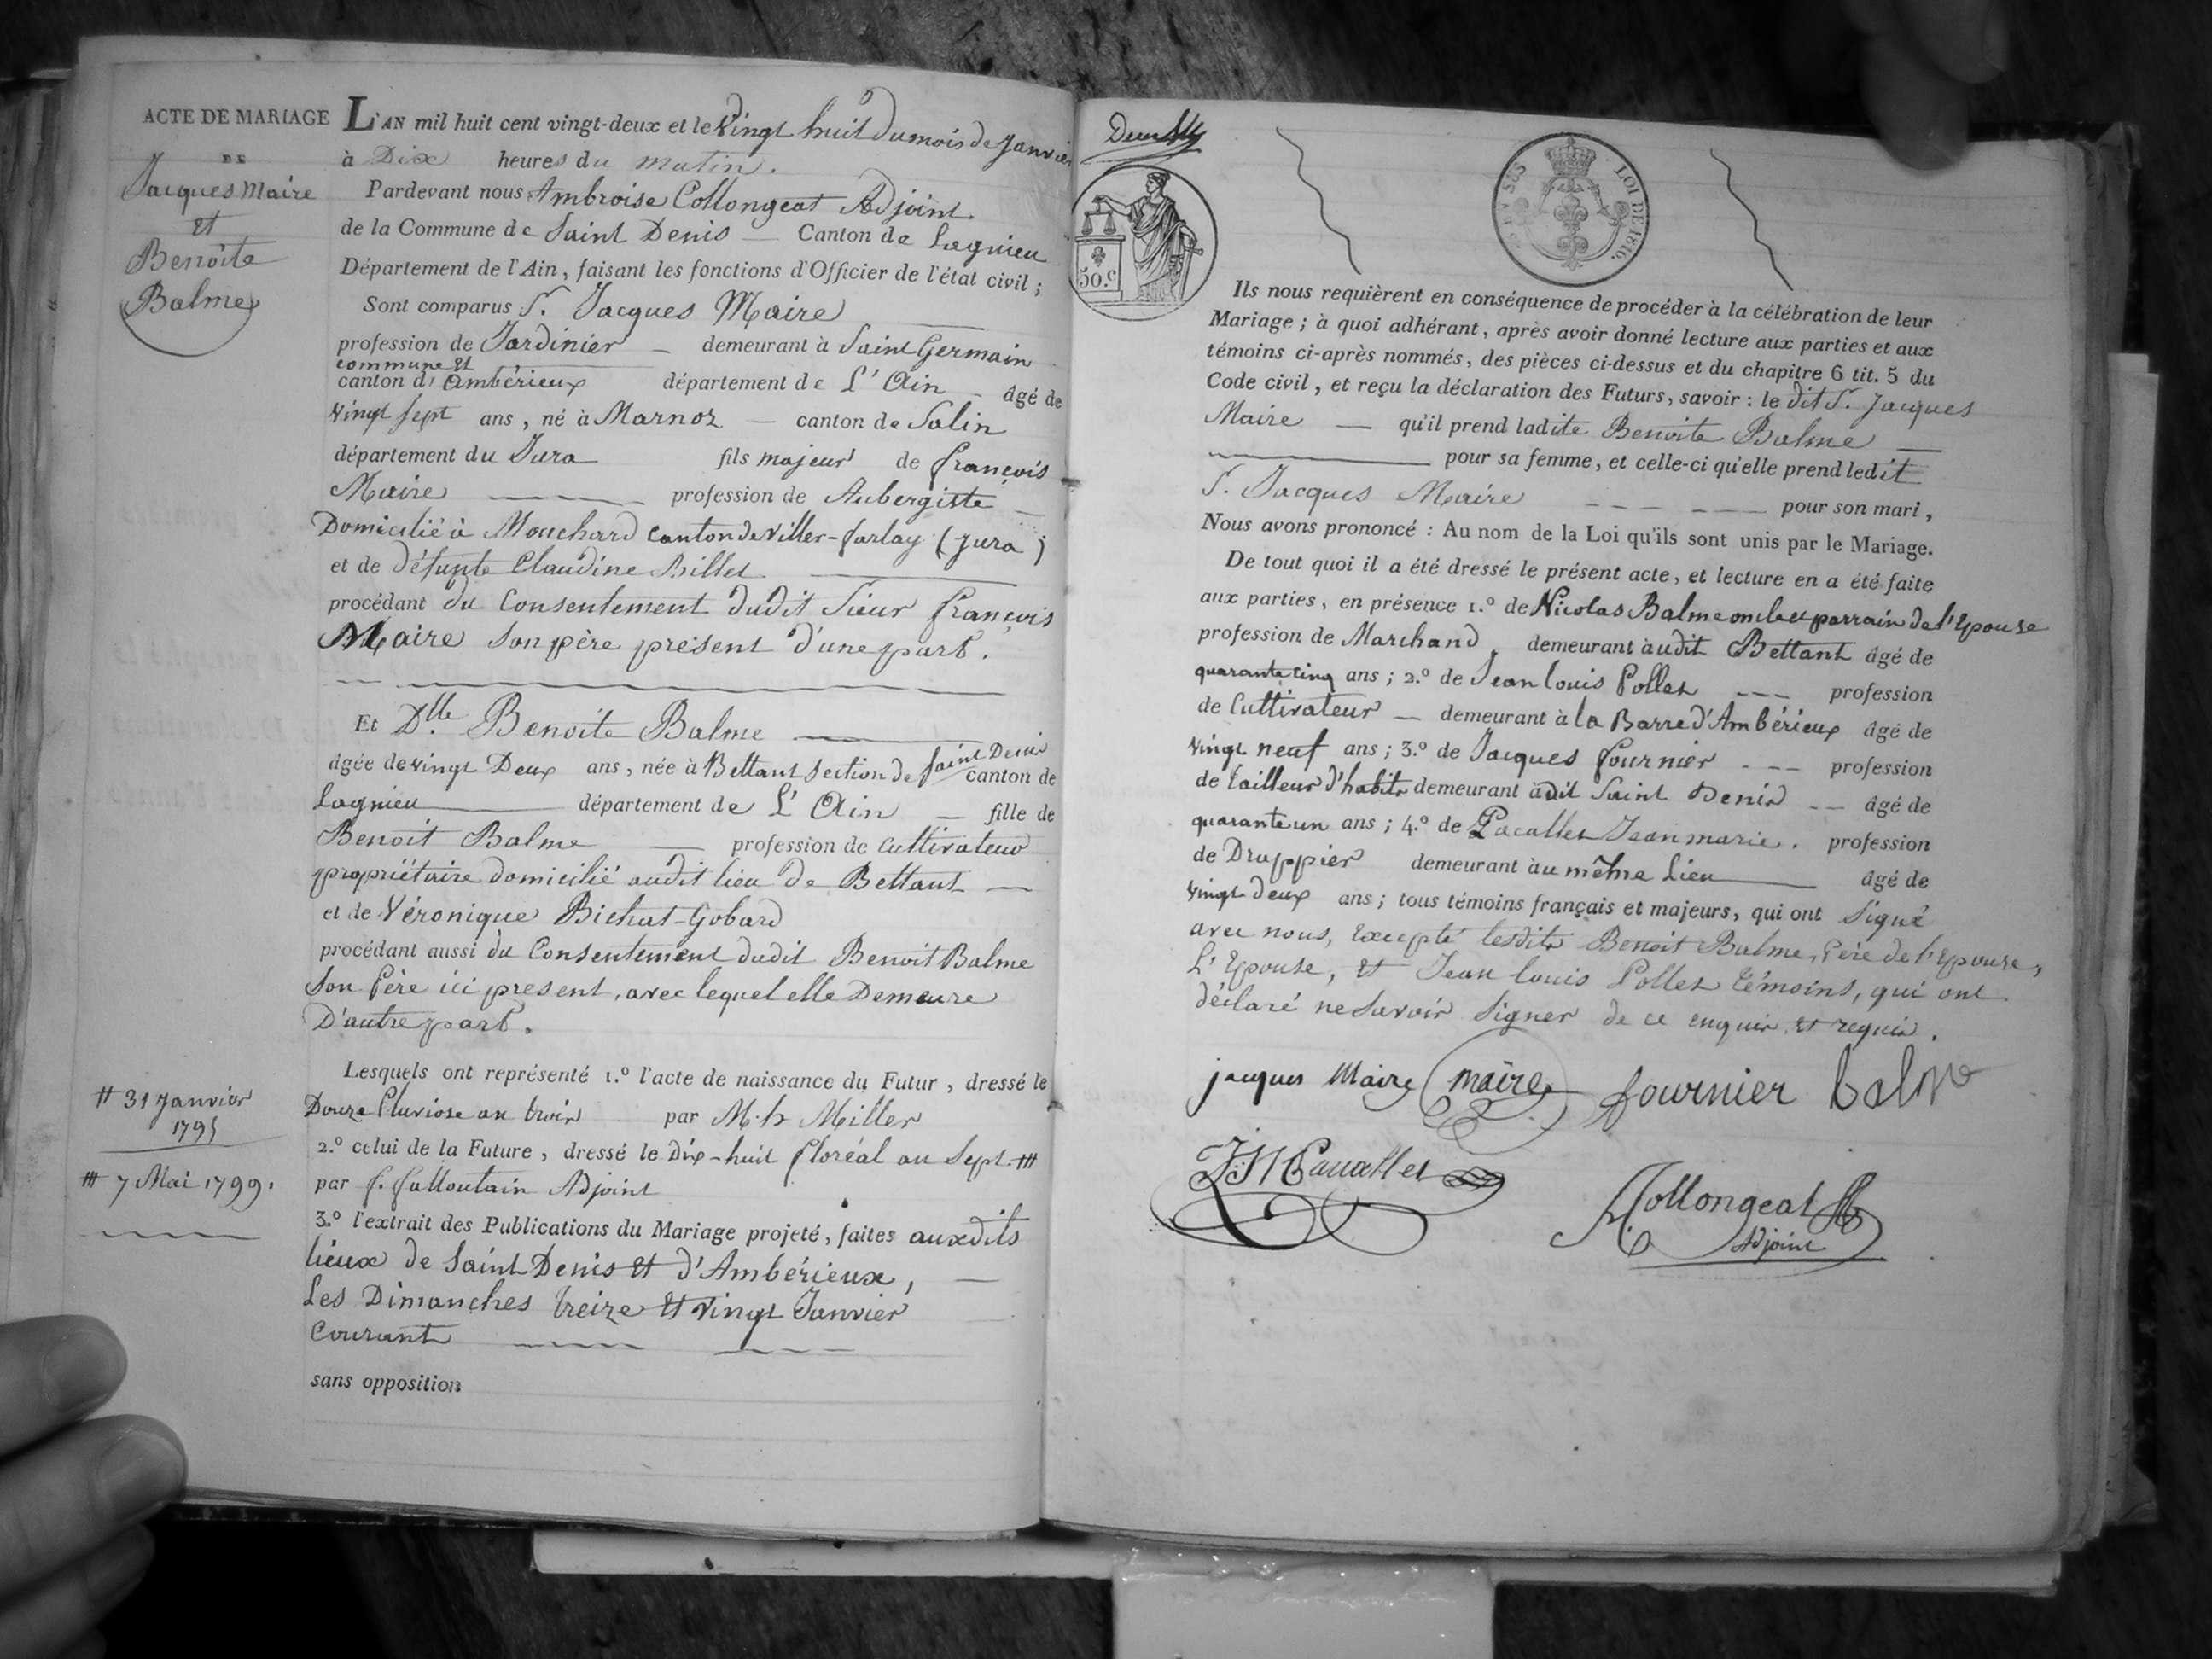 ACTE DE MARIAGE
DE
Jacques Maire
et
Benoîte
Balme
L'AN mil huit cent vingt-deux et le Vingt huit du mois de Janvier
à Dix heures du matin.
Pardevant nous Ambroise Collongeat Adjoint
de la Commune de Saint Denis — Canton de Lagnieu
Département de l'Ain, faisant les fonctions d'Officier de l'état civil ;
Sont comparus S.r Jacques Maire
profession de Jardinier — demeurant à Saint Germain
commune et
canton d'Ambérieux département de L'Ain — âgé de
vingt sept ans, né à Marnoz — canton de Salin
département du Jura fils majeur de françois
Maire — profession de Aubergiste —
Domicilié à Mouchard canton de Viller-farlay (Jura)
et de défunte Claudine Billet
procédant du Consentement dudit Sieur françois
Maire son père présent d'une part.
Et D.lle Benoite Balme
âgée de vingt Deux ans, née à Bettant Section de Saint Denis canton de
Lagnieu département de L'Ain — fille de
Benoit Balme — profession de Cultivateur
propriétaire domicilié audit lieu de Bettant —
et de Véronique Bichat-Gobard
procédant aussi du Consentement dudit Benoit Balme
Son Père ici présent, avec lequel elle Demeure
D'autre part.
Lesquels ont représenté 1.º l'acte de naissance du Futur, dressé le
# 31 Janvier
1795
Douze Pluviose an trois par M. h Miller
2.º celui de la Future, dressé le Dix-huit floréal an Sept. #
# 7 Mai 1799.
par f. Adjoint
3.º l'extrait des Publications du Mariage projeté, faites auxdits
lieux de Saint Denis et d'Ambérieux, —
Les Dimanches treize et vingt Janvier
Courant
sans opposition
50.c
LOI DE 1816.
Ils nous requièrent en conséquence de procéder à la célébration de leur
Mariage ; à quoi adhérant, après avoir donné lecture aux parties et aux
témoins ci-après nommés, des pièces ci-dessus et du chapitre 6 tit. 5 du
Code civil, et reçu la déclaration des Futurs, savoir : le dit S.r Jacques
Maire — qu'il prend ladite Benoite Balme —
pour sa femme, et celle-ci qu'elle prend ledit
S.r Jacques Maire pour son mari,
Nous avons prononcé : Au nom de la Loi qu'ils sont unis par le Mariage.
De tout quoi il a été dressé le présent acte, et lecture en a été faite
aux parties, en présence 1.º de Nicolas Balme oncle et parrain de l'Epouse
profession de Marchand, demeurant audit Bettant âgé de
quarante cinq ans ; 2.º de Jean louis Pollet profession
de Cultivateur — demeurant à la Barre d'Ambérieux âgé de
vingt neuf ans ; 3.º de Jacques fournier profession
de tailleur d'habits demeurant àdit Saint Denis âgé de
quarante un ans ; 4.º de Pacallet Jean marie. profession
de Drappier demeurant au même Lieu âgé de
vingt deux ans ; tous témoins français et majeurs, qui ont Signé
avec nous, excepté lesdits Benoit Balme, Père de l'Epouse,
L'Epouse, et Jean louis Pollet témoins, qui ont
déclaré ne savoir signer de ce enquis et requis.
jacques Maire maire fournier balme
J.M Pacallet
A. Collongeat
Adjoint